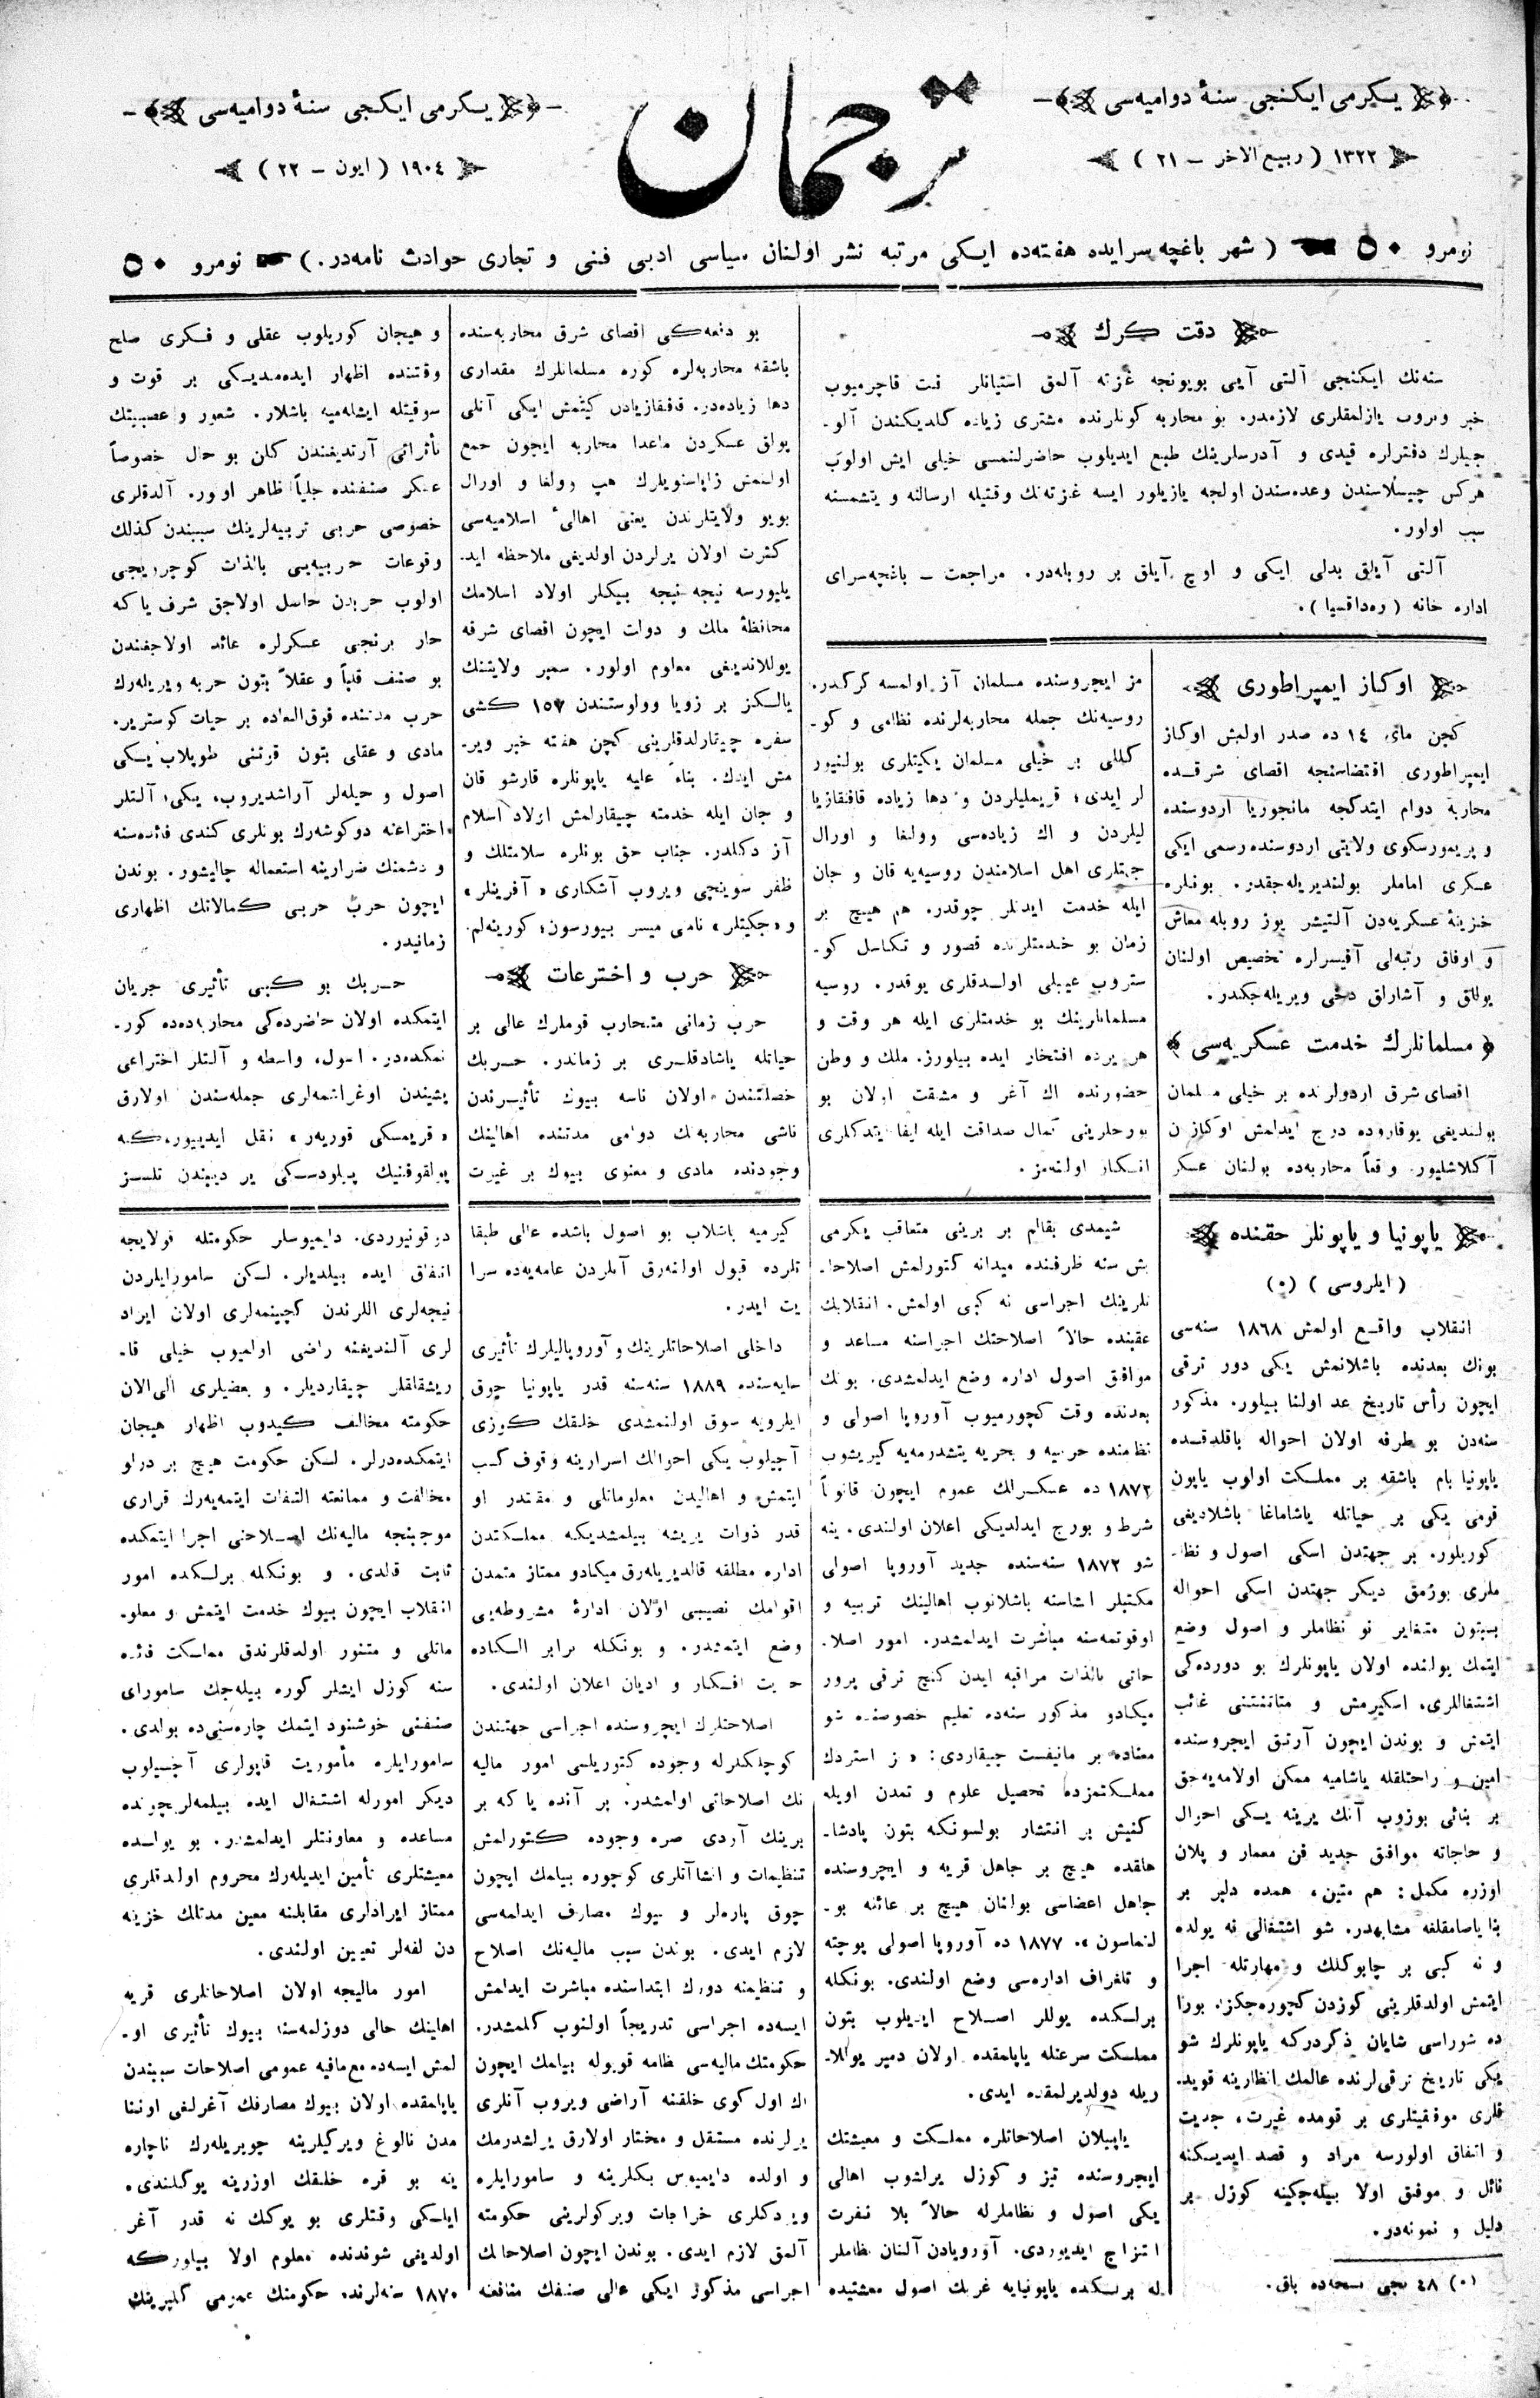 يكرمى ايكنجى سنۀ دواميه‌سى
١٣٢٢ ( ربيع الاخر – ٢١ )
ترجمان
يكرمى ايكنجى سنۀ دواميه‌سى
١٩٠٤ ( ايون – ٢٢ )
نومرو ٥٠ ( شهر باغچه سرايده هفته‌ده ايكى مرتبه نشر اولنان سياسى ادبى فنى و تجارى حوادث نامه‌در. ) نومرو ٥٠
دقت كرك
سنه‌نك ايكنجى آلتى آيى بويونجه غزته آلمق استيانلر قت قاچرميوب
خبر ويروب يازلمقلرى لازمدر. بو محاربه كونلرنده مشترى زياده كلديكندن آلو-
جيلرك دفترلره قيدى و آدرسلرينك طبع ايديلوب حاضرلنمسى خيلى ايش اولوب
هركس چيسلاسندن وعده‌سندن اولجه يازيلور ايسه غزته‌نك وقتيله ارسالنه و يتشمسنه
سبب اولور.
آلتى آيلق بدلى ايكى و اوچ آيلق بر روبله‌در. مراجعت – باغچه‌سراى
اداره خانه ( ره‌داقسيا ).
اوكاز ايمپراطورى
كچن ماى ١٤ ده صدر اولمش اوكاز
ايمپراطورى اقتضاسنجه اقصاى شرقده
محاربه دوام ايتدكجه مانجوريا اردوسنده
و پريمورسكوى ولايتى اردوسنده رسمى ايكى
عسكرى اماملر بولنديريله‌جقدر. بونلره
خزينۀ عسكريه‌دن آلتيشر يوز روبله معاش
و اوفاق رتبه‌لى آفيسرلره تخصيص اولنان
يوللق و آشارلق دخى ويريله‌جكدر.
مسلمانلرك خدمت عسكريه‌سى
اقصاى شرق اردولرنده بر خيلى مسلمان
بولنديغى يوقاروده درج ايدلمش اوكازدن
آكلاشليور. وقعاً محاربه‌ده بولنان عسكر
مز ايچروسنده مسلمان آز اولمسه كركدر.
روسيه‌نك جمله محاربه‌لرنده نظامى و كو-
كللى بر خيلى مسلمان يكيتلرى بولنيور
لر ايدى؛ قريمليلردن و دها زياده قافقازيا
ليلردن و اك زياده‌سى وولغا و اورال
جهتلرى اهل اسلامندن روسيه‌يه قان و جان
ايله خدمت ايدنلر چوقدر. هم هيچ بر
زمان بو خدمتلرنده قصور و تكاسل كو-
ستروب عيبلى اولدقلرى يوقدر. روسيه
مسلمانلرينك بو خدمتلرى ايله هر وقت و
هر يرده افتخار ايده بيلورز. ملك و وطن
حضورنده اك آغر و مشقت اولان بو
بورجلرينى كمال صداقت ايله ايفا ايتدكلرى
انكار اولنه‌مز.
بو دفعه‌كى اقصاى شرق محاربه‌سنده
باشقه محاربه‌لره كوره مسلمانلرك مقدارى
دها زياده‌در. قافقازيادن كيتمش ايكى آتلى
پولق عسكردن ماعدا محاربه ايچون جمع
اولنمش زاپاسنويلرك هپ وولغا و اورال
بويو ولايتلرندن يعنى اهالىء اسلاميه‌سى
كثرت اولان يرلردن اولديغى ملاحظه ايد-
يليورسه نيجه نيجه بيكلر اولاد اسلامك
محافظۀ ملك و دولت ايچون اقصاى شرقه
يوللانديغى معلوم اولور. سمبر ولايتنك
يالكز بر زويا وولوستندن ١٥٧ كشى
سفره چيقارلدقلرينى كچن هفته خبر وير-
مش ايدك. بناءً عليه ياپونلره قارشو قان
و جان ايله خدمته چيقارلمش اولاد اسلام
آز دكلدر. جناب حق بونلره سلامتلك و
ظفر سوينچى ويروب آشكارى «آفرينلر»
و «جكيتلر» نامى ميسر بيورسون؛ كورينه‌لم.
حرب و اخترعات
حرب زمانى متحارب قوملرك عالى بر
حياتله ياشادقلرى بر زماندر. حربك
خصلتندن اولان ناسه بيوك تأثيرندن
ناشى محاربه‌نك دوامى مدتنده اهالينك
وجودنده مادى و معنوى بيوك بر غيرت
و هيجان كوريلوب عقلى و فكرى صلح
وقتنده اظهار ايده‌مديكى بر قوت و
سوقيتله ايشله‌ميه باشلار. شعور و عصبيتك
تأثراتى آرتديغندن كلن بو حال خصوصاً
عسكر صنفنده جلياً ظاهر اولور. آلدقلرى
خصوصى حربى تربيه‌لرينك سببندن كذلك
وقوعات حربيه‌يى بالذات كوچرويجى
اولوب حربدن حاصل اولاجق شرف ياكه
حار برنجى عسكرلره عائد اولاجغندن
بو صنف قلباً و عقلاً بتون حربه ويريله‌رك
حرب مدتنده فوق‌العاده بر حيات كوسترير.
مادى و عقلى بتون قوتنى طوپلاب يكى
اصول و حيله‌لر آراشديروب، يكى آلتلر
اختراعنه دوكوشه‌رك بونلرى كندى فائده‌سنه
و دشمنك ضرارينه استعماله چاليشور. بوندن
ايچون حرب حربى كمالاتك اظهارى
زمانيدر.
حربك بو كبى تأثيرى جريان
ايتمكده اولان حاضرده‌كى محاربه‌ده‌ده كور-
نمكده‌در. اصول، واسطه و آلتلر اختراعى
پشيندن اوغراشمه‌لرى جمله‌سندن اولارق
«قريمسكى قوريه‌ر» نقل ايدييور، كه
پولقوقنيك پيلودسكى ير ديبندن تلسز
ياپونيا و ياپونلر حقنده
( ايلروسى ) (٠)
انقلاب واقع اولمش ١٨٦٨ سنه‌سى
بونك بعدنده باشلانمش يكى دور ترقى
ايچون رأس تاريخ عد اولنا بيلور. مذكور
سنه‌دن بو طرفه اولان احواله باقلدقده
ياپونيا بام باشقه بر مملكت اولوب ياپون
قومى يكى بر حياتله ياشاماغا باشلاديغى
كوريلور. بر جهتدن اسكى اصول و نظا-
ملرى بوزمق ديكر جهتدن اسكى احواله
بسبتون متغاير نو نظاملر و اصول وضع
ايتمك يولنده اولان ياپونلرك بو دورده‌كى
اشتغاللرى، اسكيرمش و متانتنى غائب
ايتمش و بوندن ايچون آرتق ايچروسنده
امين و راحتلقله ياشاميه ممكن اولاميه‌جق
بر بنائى بوزوب آنك يرينه يكى احوال
و حاجاته موافق جديد فن معمار و پلان
اوزره مكمل: هم متين، همده دلبر بر
بنا ياصامقلغه مشابهدر. شو اشتغالى نه يولده
و نه كبى بر چابوكلك و مهارتله اجرا
ايتمش اولدقلرينى كوزدن كچوره‌جكز. بورا
ده شوراسى شايان ذكردركه ياپونلرك شو
يكى تاريخ ترقى‌لرنده عالمك انظارينه قويد-
قلرى موفقيتلرى بر قومده غيرت، جديت
و اتفاق اولورسه مراد و قصد ايديكنه
نائل و موفق اولا بيله‌جكينه كوزل بر
دليل و نمونه‌در.
(٠) ٤٨ نجى نسخه‌ده باق.
شيمدى بقالم بر برينى متعاقب يكرمى
بش سنه ظرفنده ميدانه كتورلمش اصلاحا-
تلرينك اجراسى نه كبى اولمش. انقلابك
عقبنده حالاً اصلاحتك اجراسنه مساعد و
موافق اصول اداره وضع ايدلمشدى. بونك
بعدنده وقت كچورميوب آوروپا اصولى و
نظامنده حربيه و بحريه يتشدرمه‌يه كيريشوب
١٨٧٢ ده عسكرلك عموم ايچون قانوناً
شرط و بورج ايدلديكى اعلان اولندى. ينه
شو ١٨٧٢ سنه‌سنده جديد آوروپا اصولى
مكتبلر انشاسنه باشلانوب اهالينك تربيه و
اوقوتمه‌سنه مباشرت ايدلمشدر. امور اصلا-
حاتى بالذات مراقبه ايدن كنج ترقى پرور
ميكادو مذكور سنه‌ده تعليم خصوصنده شو
معناده بر مانيفست چيقاردى: «بز استردك
مملكتمزده تحصيل علوم و تمدن اويله
كنيش بر انتشار بولسونكه بتون پادشا-
هلقده هيچ بر جاهل قريه و ايچروسنده
جاهل اعضاسى بولنان هيچ بر عائله بو-
لنماسون». ١٨٧٧ ده آوروپا اصولى پوچته
و تلغراف اداره‌سى وضع اولندى. بونكله
برلكده يوللر اصلاح ايديلوب بتون
مملكت سرعتله ياپلمقده اولان دمير يوللا-
ريله دولديرلمقده ايدى.
ياپيلان اصلاحاتلره مملكت و معيشتك
ايچروسنده تيز و كوزل يرلشوب اهالى
يكى اصول و نظاملرله حالاً بلا نفرت
امتزاج ايدييوردى. آوروپادن آلنان نظاملر
له برلكده ياپونيايه غربك اصول معشتيده
كيرميه باشلاب بو اصول باشده عالى طبقا
تلرده قبول اولنه‌رق آنلردن عامه‌يه‌ده سرا
يت ايدر.
داخلى اصلاحاتلرينك و آوروپاليلرك تأثيرى
سايه‌سنده ١٨٨٩ سنه‌سنه قدر ياپونيا چوق
ايلرويه سوق اولنمشدى خلقك كوزى
آچيلوب يكى احوالك اسرارينه وقوف كسب
ايتمش و اهاليدن معلوماتلى و مقتدر او
قدر ذوات يريشه بيلمشديكه مملكتدن
اداره مطلقه قالديريله‌رق ميكادو ممتاز متمدن
اقوامك نصيبى اولان ادارۀ مشروطه‌يى
وضع ايتمشدر. و بونكله برابر الكاده
حريت افكار و اديان اعلان اولندى.
اصلاحتلرك ايچروسنده اجراسى جهتندن
كوچلكلرله وجوده كتوريلسى امور ماليه
نك اصلاحاتى اولمشدر. بر آنده ياكه بر
برينك آردى صره وجوده كتورلمش
تنظيمات و انشاآتلرى كوچوره بيلمك ايچون
چوق پاره‌لر و بيوك مصارف ايدلمه‌سى
لازم ايدى. بوندن سبب ماليه‌نك اصلاح
و تنظيمنه دورك ابتداسنده مباشرت ايدلمش
ايسه‌ده اجراسى تدريجاً اولنوب كلمشدر.
حكومتك ماليه‌سى نظامه قويوله بيلمك ايچون
اك اول كوى خلقنه آراضى ويروب آنلرى
يرلرنده مستقل و مختار اولارق يرلشدرمك
و اولده دايميوس بكلرينه و سامورايلره
ويردكلرى خراجات و يركولرينى حكومته
آلمق لازم ايدى. بوندن ايچون اصلاحاتك
اجراسى مذكور ايكى عالى صنفك منافعنه
درقونيوردى. دايميوسلر حكومتله قولايجه
اتفاق ايده بيلديلر. لكن سامورايلردن
نيجه‌لرى اللرندن كچينمه‌لرى اولان ايراد
لرى آلنديغنه راضى اولميوب خيلى قا-
ريشقلقلر چيقارديلر. و بعضيلرى الى‌الان
حكومته مخالف كيدوب اظهار هيجان
ايتمكده‌درلر. لكن حكومت هيچ بر درلو
مخالفت و ممانعته التفات ايتمه‌يه‌رك قرارى
موجبنجه ماليه‌نك اصلاحنى اجرا ايتمكده
ثابت قالدى. و بونكله برلكده امور
انقلاب ايچون بيوك خدمت ايتمش و معلو-
ماتلى و متنور اولدقلرندن مملكت فائده
سنه كوزل ايشلر كوره بيله‌جك ساموراى
صنفنى خوشنود ايتمك چاره‌سنى‌ده بولدى.
سامورايلره مأموريت قاپولرى آچيلوب
ديكر امورله اشتغال ايده بيلمه‌لرچونده
مساعده و معاونتلر ايدلمشدر. بو يولده
معيشتلرى تأمين ايديله‌رك محروم اولدقلرى
ممتاز ايرادلرى مقابلنه معين مدتلك خزينه
دن لفه‌لر تعيين اولندى.
امور ماليجه اولان اصلاحاتلرى قريه
اهلينك حالى دوزلمه‌سنه بيوك تأثيرى او-
لمش ايسه‌ده مع‌مافيه عمومى اصلاحات سببندن
ياپلمقده اولان بيوك مصارفك آغرلغى اوننا
مدن نالوغ ويركيلرينه چوريله‌رك ناچاره
ينه بو قره خلقك اوزرينه يوكلندى.
ايلكى وقتلرى بو يوكك نه قدر آغر
اولديغى شوندنده معلوم اولا بيلوركه
١٨٧٠ سنه‌لرنده حكومتك عمومى كليرينك